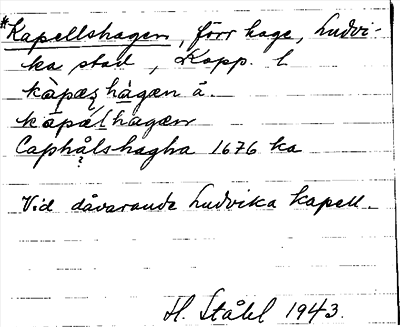 *Kapellshagen, förr hage, Ludvi-
ka stad, Kopp. l
kàpæʂhàgæn ä.
kapælhagæn
Caphålshagha 1676 ka
?
Vid dåvarande Ludvika kapell.
H. Ståhl 1943.